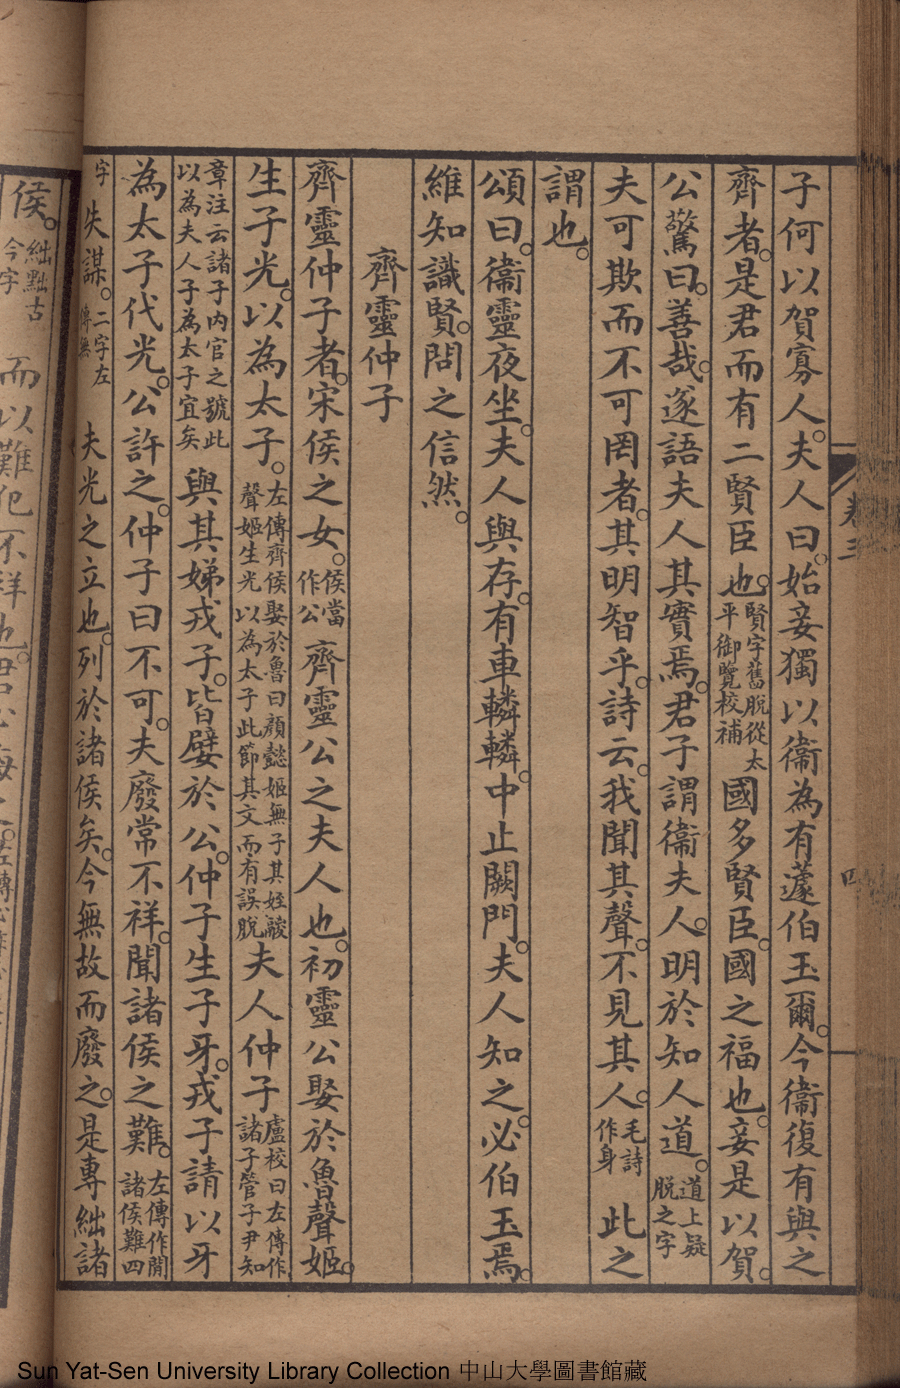 子何以賀寡人。夫人曰。始妾獨以衞為有蘧伯玉爾。今衞復有與之
齊者。是君而有二賢臣也。賢字舊脫從太平御覽校補國多賢臣。國之福也。妾是以賀。
公驚曰。善哉。遂語夫人其實焉。君子謂衞夫人。明於知人道。道上疑脫之字
夫可欺而不可罔者。其明智乎。詩云。我聞其聲。不見其人。毛詩作身此之
謂也。
頌曰。衞靈夜坐。夫人與存。有車轔轔。中止闕門。夫人知之。必伯玉焉。
維知識賢。問之信然。
齊靈仲子
齊靈仲子者。宋侯之女。侯當作公齊靈公之夫人也。初靈公娶於魯聲姬。
生子光。以為太子。左傳齊侯娶於魯曰顏懿姬無子其姪鬷聲姬生光以為太子此節其文而有誤脫夫人仲子盧校曰左傳作諸子管子尹知
章注云諸子內官之號此以為夫人子為太子宜矣與其娣戎子。皆嬖於公。仲子生子牙。戎子請以牙
為太子代光。公許之。仲子曰不可。夫廢常不祥。聞諸侯之難。左傳作閒諸侯難四
字失謀。二字左傳無夫光之立也。列於諸侯矣。今無故而廢之。是專絀諸
侯。絀黜古今字而以難犯不祥也。君必悔之。
卷三
四
Sun Yat-Sen University Library Collection 中山大學圖書館藏